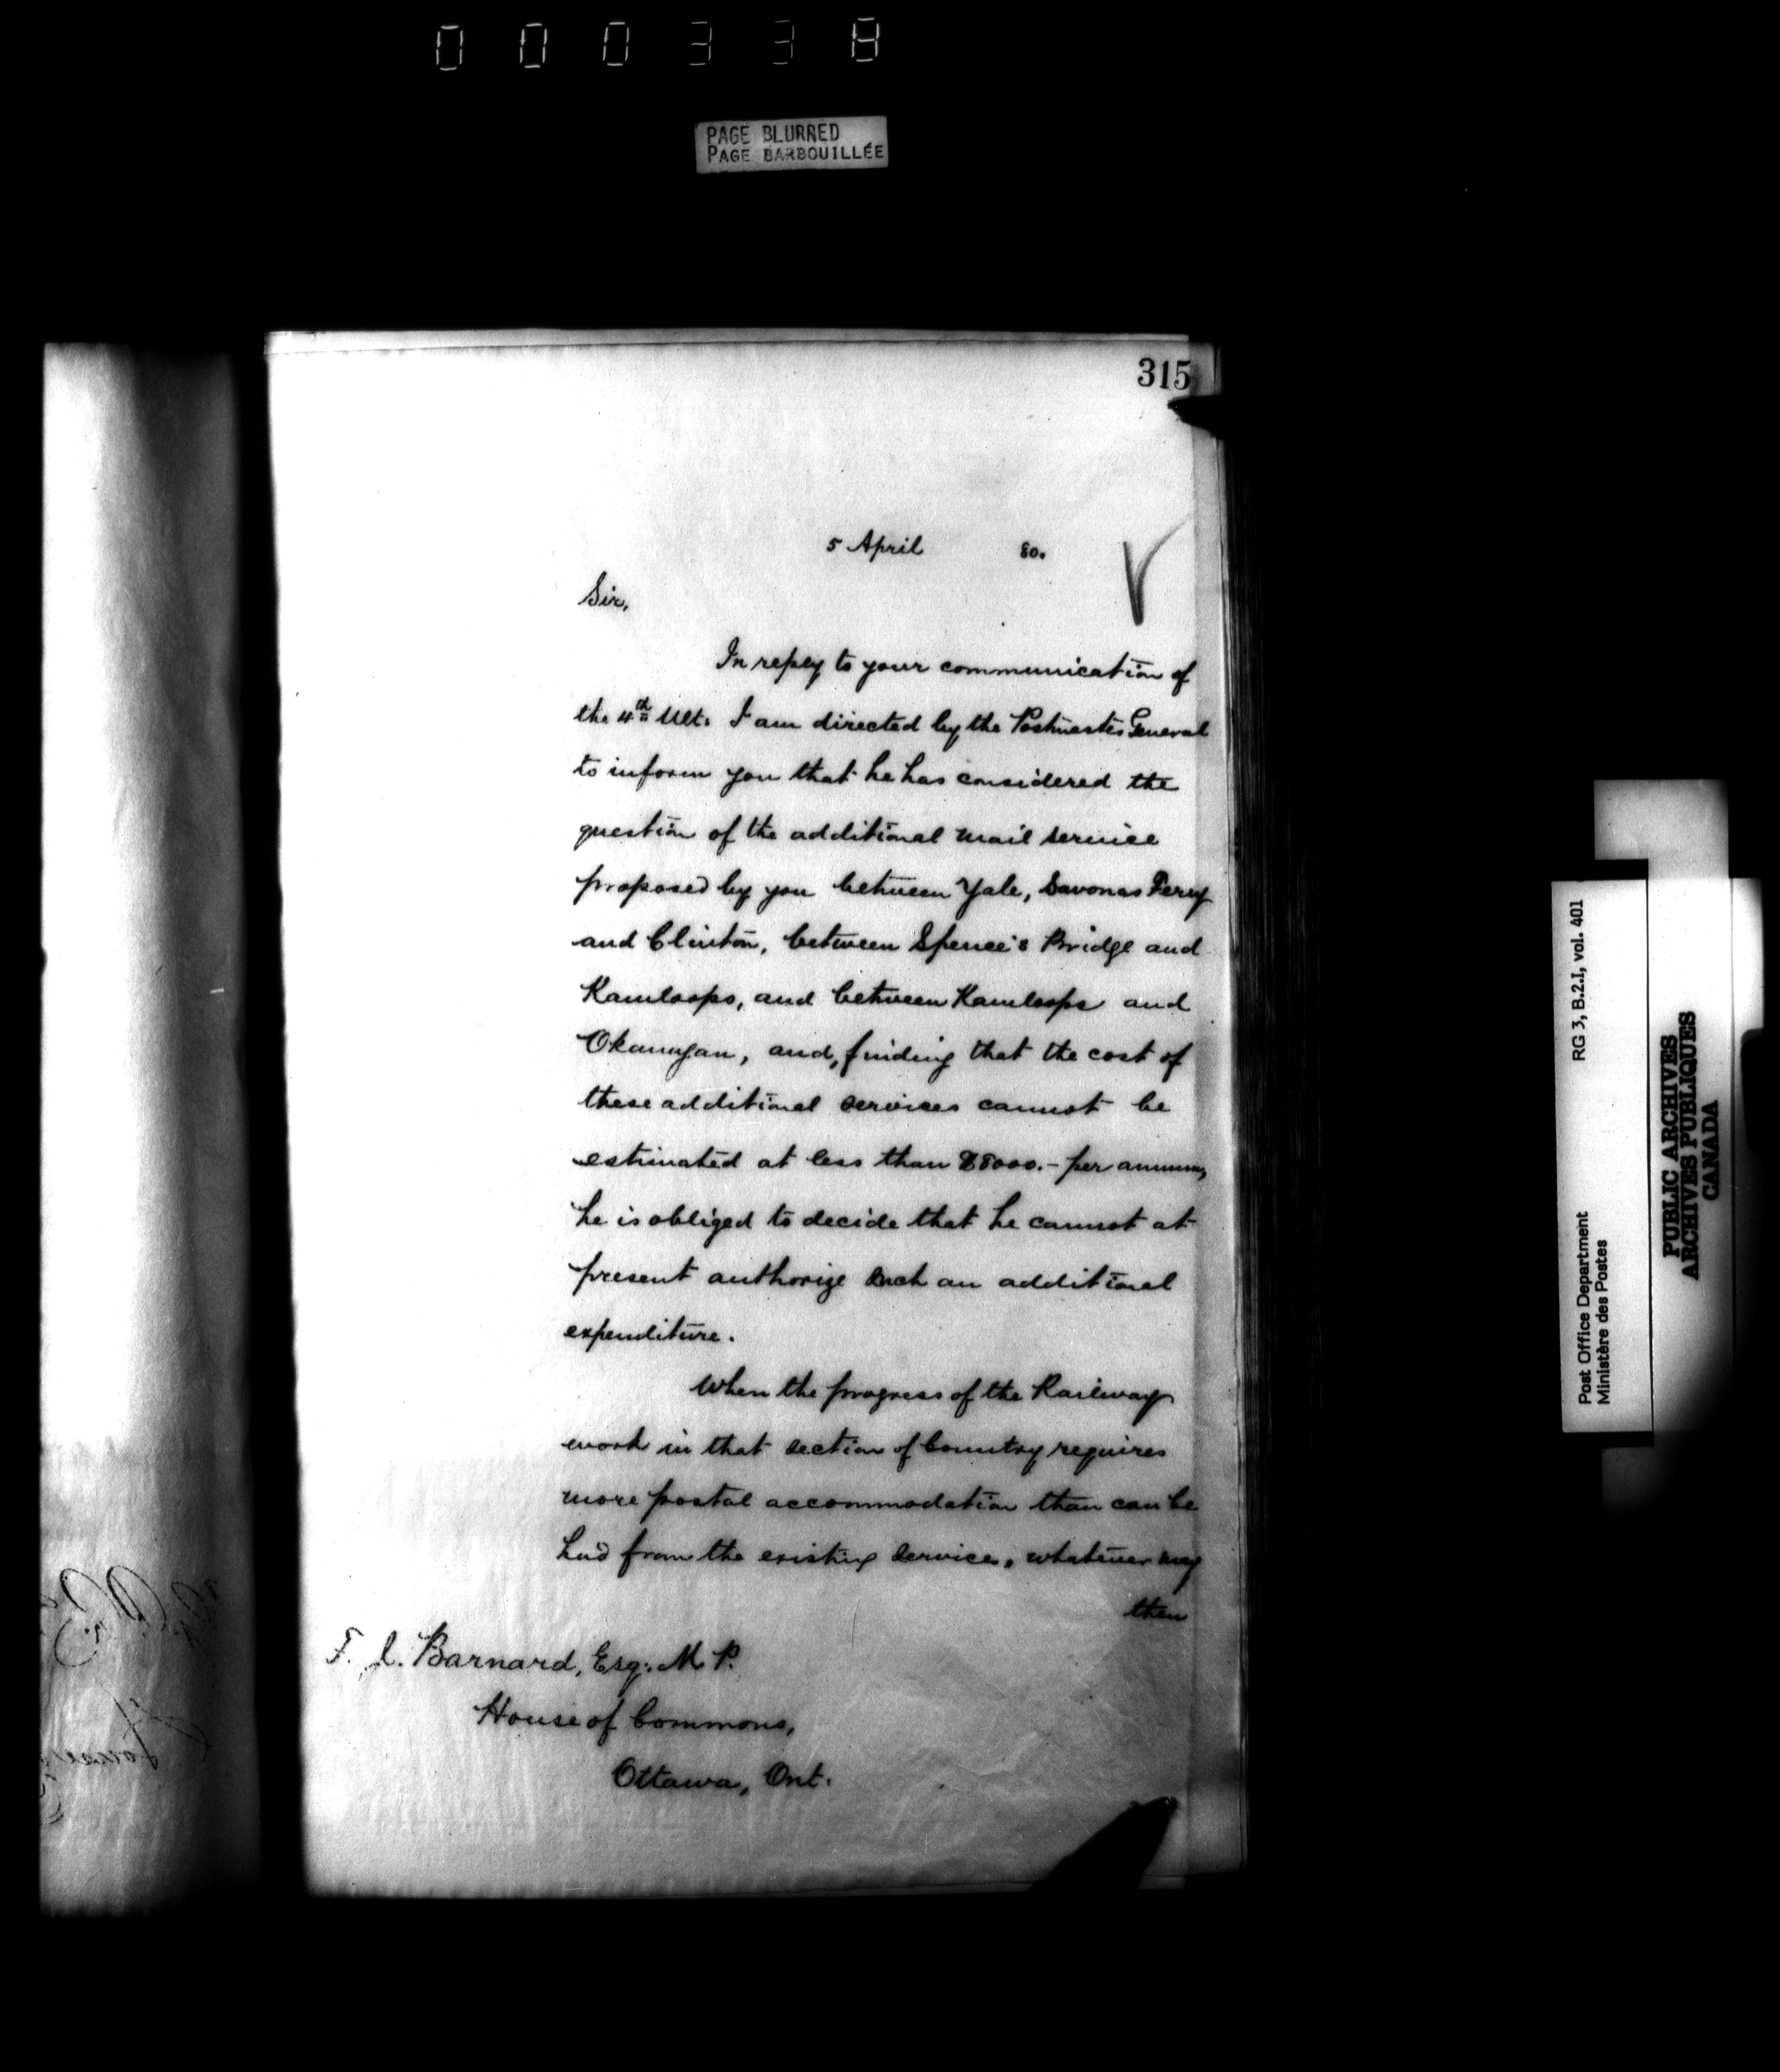 000338
PAGE BLURRED
PAGE BARBOUILLÉE
315
5 April 80.
Sir,
In reply to your communication of
the 4th Ult. I am directed by the Postmaster General
to inform you that he has considered the
question of the additional mail service
proposed by you between Yale, Savonas Ferry
and Clinton, between Spence's Bridge and
Kamloops, and between Kamloops and
Okanagan, and, finding that the cost of
these additional services cannot be
estimated at less than $8000.- per annum,
he is obliged to decide that he cannot at
present authorize such an additional
expenditure.
When the progress of the Railway
work in that section of Country requires
more postal accommodation than can be
had from the existing service, whatever may
then
F. J. Barnard, Esq. M. P.
House of Commons,
Ottawa, Ont.
RG 3, B.2.I, vol. 401
Post Office Department
Ministère des Postes
PUBLIC ARCHIVES
ARCHIVES PUBLIQUES
CANADA